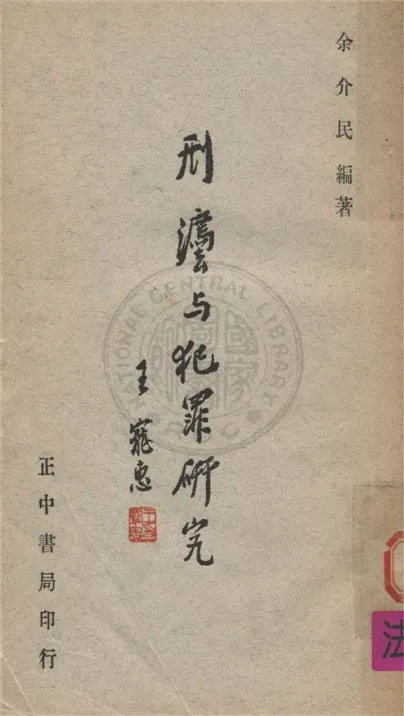 余介民編著
刑灋与犯罪研究
王寵惠
正中書局印行
NATIONAL CENTRAL LIBRARY
法